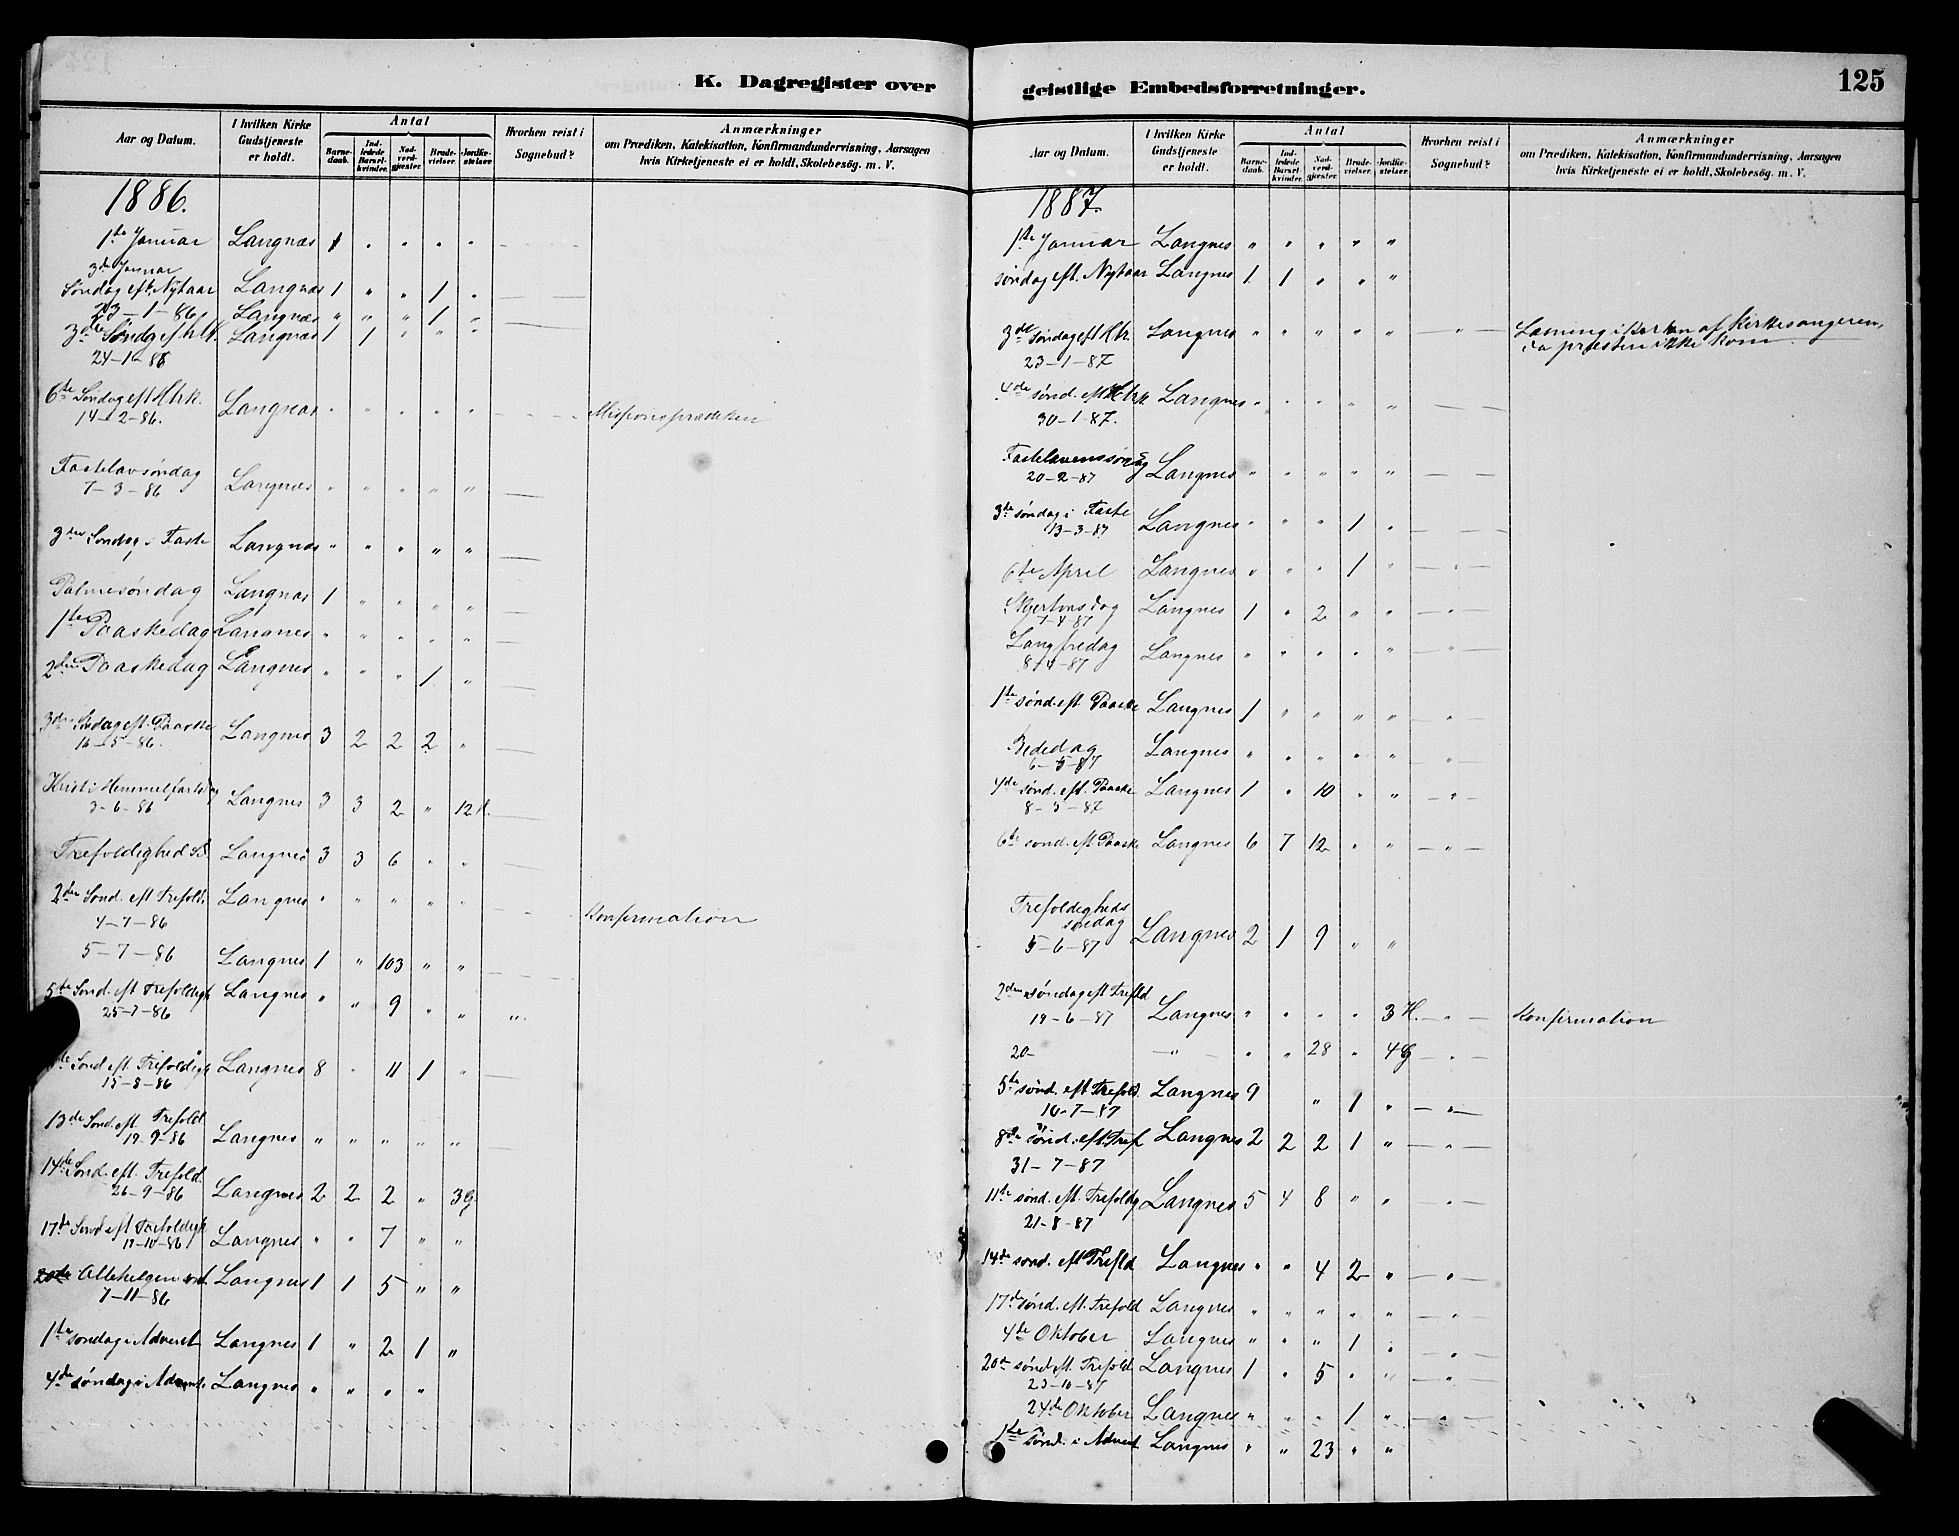 K. Dagregister over
Aar og Datum. I hvilken Kirke Gudstjeneste er holdt. Antal Barnedaab. Indledede Barselkvinder. Nadverdgjæster. Brudevielser. Jordfæstelser. Hvorhen reist i Sognebud? Anmærkninger om Prædiken, Katekisation, Konfirmandundervisning, Aarsagen hvis Kirketjeneste ei er holdt, Skolebesög. m. V.
1886.
1ste Januar Langnæs 1 " " " "
3de Januar
Søndag eft. Nytaar Langnæs 1 " " 1 "
23-1-86 Langnæs " " " 1 "
3de Søndg eft H.K. Langnæs 1 1 " " "
24-1-86
6te Søndag eft H3k. Langnæs " " " " " Missionsprædiken
14-2-86.
Fastelavsøndag Langnæs " " " " "
7-3-86
3die Søndag i Faste Langnæs " " " " "
Palmesøndag Langnæs 1 " " " "
1ste Paaskedag Langnes " " " " "
2den Paaskedag Langnes " " " 1 "
3die Søndag eft. Paaske Langnes 3 2 2 2 "
16-5-86.
Kristi Himmelfartsdag Langnes 3 3 2 " 12
3-6-86
Trefoldighed S. Langnes 3 3 6 " "
2den Sønd. eft Trefold. Langnes " " " " " Konfirmation
4-7-86
5-7-86 Langnes 1 " 103 " "
5te Sønd. eft Trefoldigh Langnes " " 9 " " "
25-7-86
Sønd eft. Trefoldigh Langnes 8 " 11 1 "
15-8-86
13de Sønd. eft Trefold. Langnes " " " " "
19-9-86
14de Sønd. eft. Trefold. Langnes 2 2 2 " 3 G
26-9-86
17de Sønd eft Trefoldigh Langnes " " 7 " "
17-10-86
20de Allehelgen sønd. Langnes 1 1 5 " "
7-11-86
1ste søndag i Advent Langnes 1 " 2 1 "
4de søndag i Advent Langnes " " " "
geistlige Embedsforretninger. 125
Aar og Datum. I hvilken Kirke Gudstjeneste er holdt. Antal Barnedaab. Indledede Barselkvinder. Nadverdgjæster. Brudevielser. Jordfæstelser. Hvorhen reist i Sognebud? Anmærkninger om Prædiken, Katekisation, Konfirmandundervisning, Aarsagen hvis Kirketjeneste ei er holdt, Skolebesög. m. V.
1887.
1ste Januar Langnes " " " " "
søndag eft. Nytaar Langnes 1 1 " " "
3de søndag eft H3k. Langnes " " " " " — " — Læsning i Kirken af Kirkesangeren,
23-1-87 da præsten ikke kom.
4de sønd. eft H3k Langnes " " " " "
30-1-87.
Fastelavenssøndag Langnes " " " " "
20-2-87
3die søndag i Faste Langnes " " " 1 "
13-3-87
6te April Langnes " " " 1 " — " —
Skjertorsdag Langnes 1 " 2 " " — " —
7-4-87
Langfredag Langnes " " " " " — " —
8-4-87
1ste sønd. eft. Paaske Langnes 1 " " " " — " —
Bededag Langnes " " " " " — " —
6-5-87
4de sønd. eft. Paaske Langnes 1 " 10 " " — " —
8-5-87
6te sønd. eft Paaske Langnes 6 7 12 " " — " —
Trefoldigheds
søndag Langnes 2 1 9 " "
5-6-87
2den søndag eft Trefld Langnes " " " " 3 H. — " — Konfirmation
19-6-87
20- — " — " " 28 " 4 G — " —
5te sønd. eft Trefold. Langnes 9 " 1 " — " —
10-7-87
8de sønd. eft. Tref Langnes 2 2 2 1 " — " —
31-7-87
11te sønd. eft. Trefoldg Langnes 5 4 8 " " — " —
21-8-87
14de sønd. eft Trefld Langnes " " 4 2 " — " —
17de sønd. eft. Trefold Langnes " " " " " "
4de Oktober Langnes " " " 1 " — " —
20de sønd eft. Trefold Langnes 1 " 5 " " — " —
23-10-87
24de Oktober Langnes " " " 1 " — " —
1ste sønd. i Advent Langnes " " 23 " "